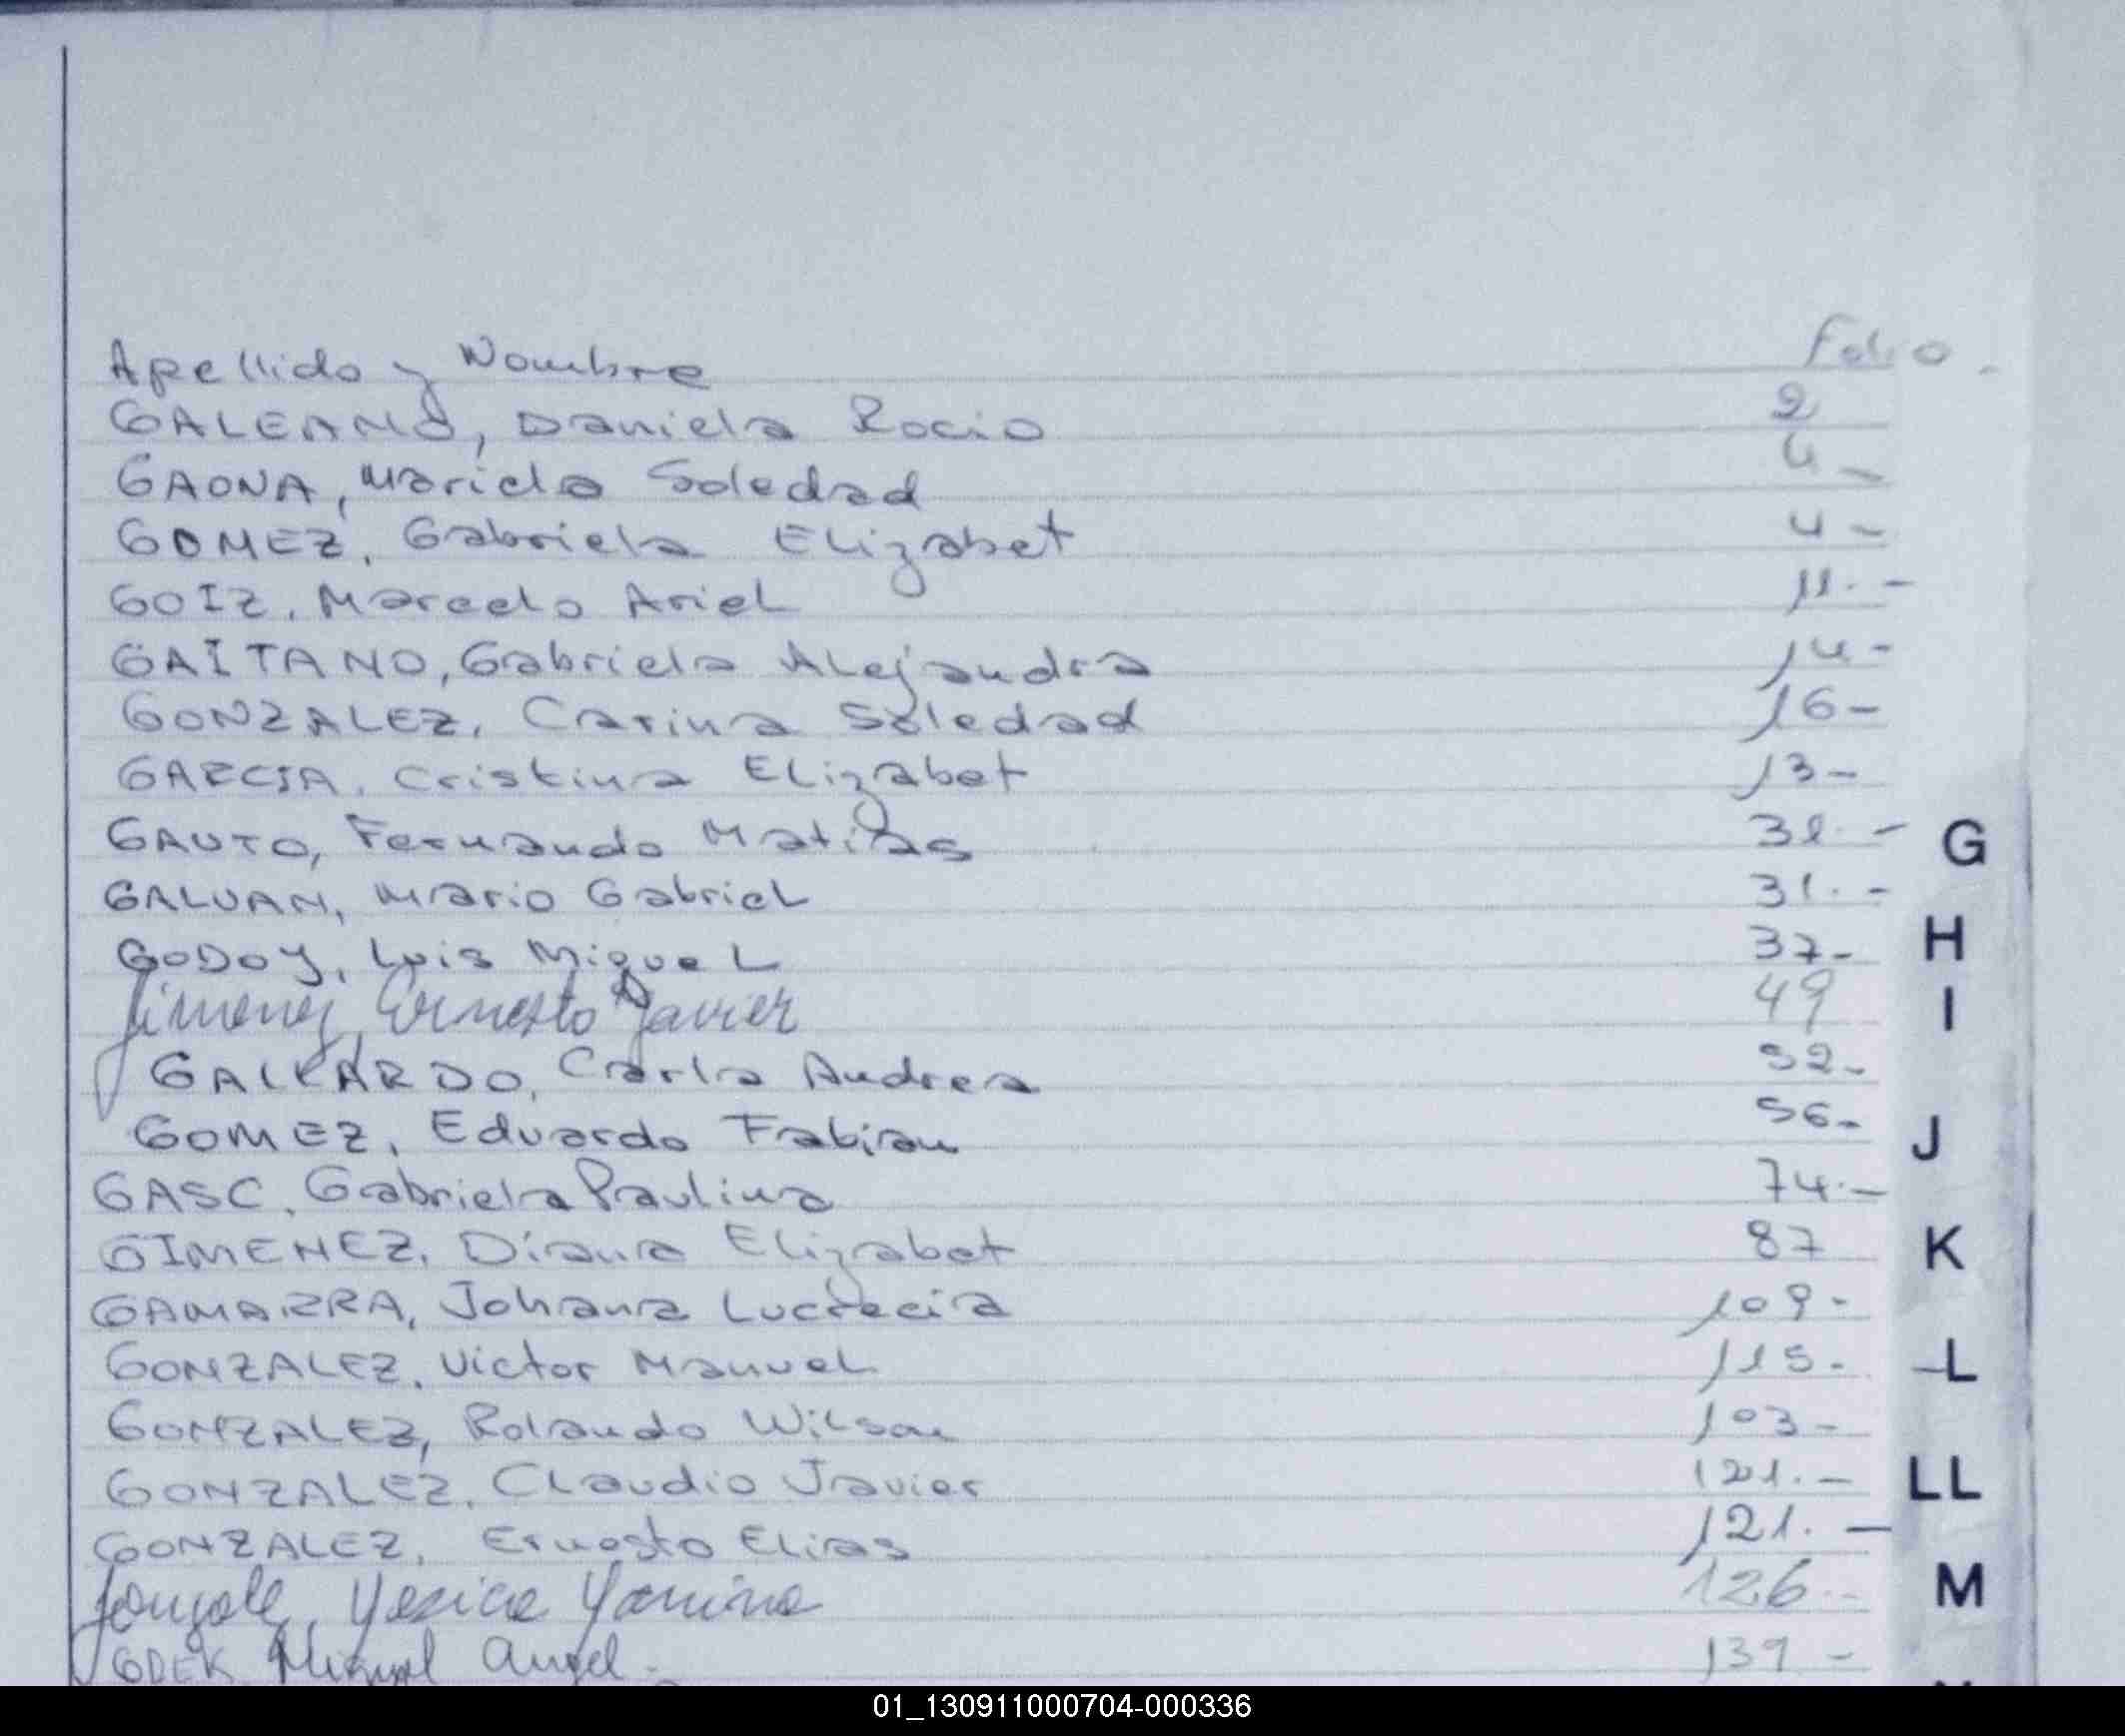 Apellido y Nombre Folio.
GALEANO, Daniela Rocio 2
GAONA, Mariela Soledad 4-
GOMEZ, Gabriela Elizabet 4-
GOIZ, Marcelo Ariel 11.-
GAITANO, Gabriela Alejandra 14-
GONZALEZ, Carina Soledad 16-
GARCIA, Cristina Elizabet 13-
GAUTO, Fernando Matias -
G
GALVAN, Mario Gabriel 31.-
GODOY, Luis Miguel 37-
H
Jimenez, Ernesto Javier 49
I
GALLARDO, Carla Andrea 52-
GOMEZ, Eduardo Fabian 56-
J
GASC, Gabriela Paulina 74.-
GIMENEZ, Diana Elizabet 87
K
GAMARRA, Johana Lucrecia 109-
GONZALEZ, Victor Manuel 115-
L
GONZALEZ, Rolando Wilson 103-
GONZALEZ, Claudio Javier 121.-
LL
GONZALEZ, Ernesto Elias 121.-
Yesica Yamina 126-
M
Miguel Angel. 139-
01_130911000704-000336